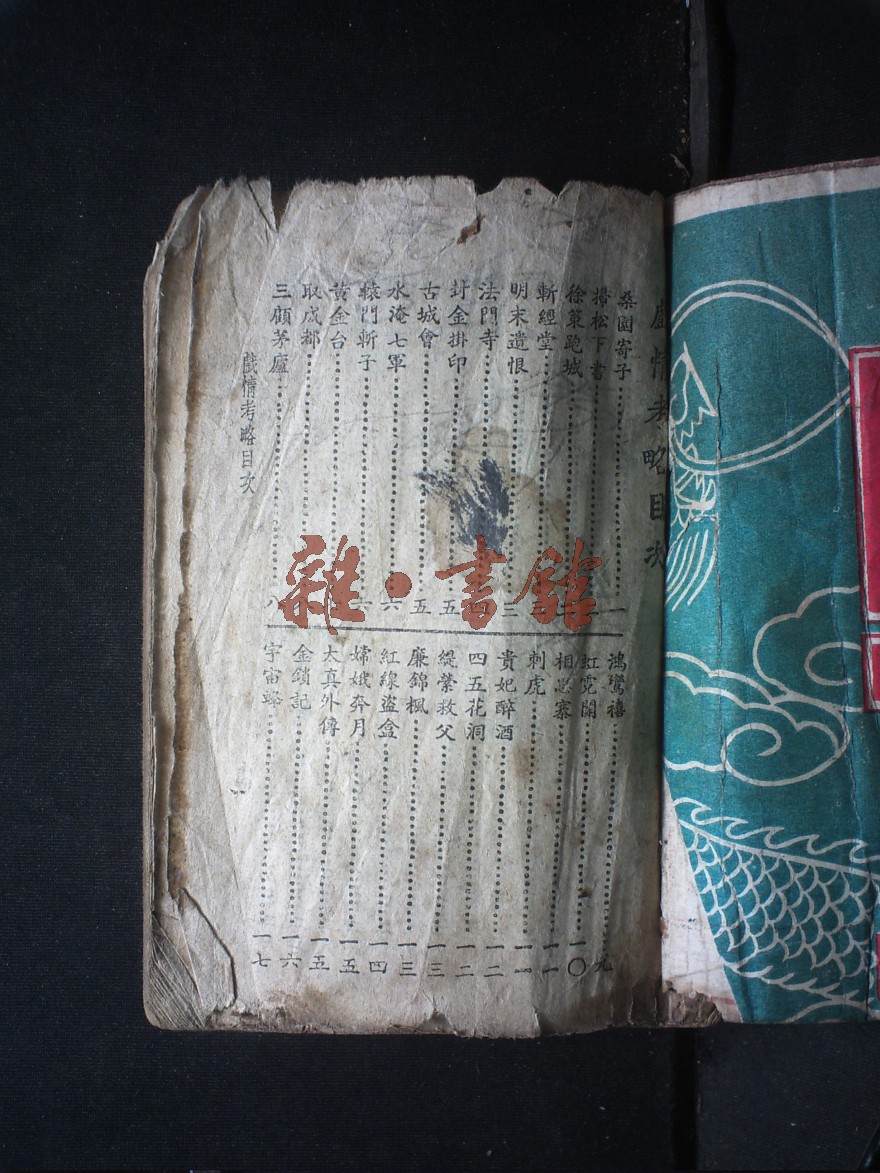 戲情考略目次
桑園寄子 一
掃松下書
徐策跑城
斬經堂
明末遺恨 三
法門寺 四
封金掛印 五
古城會 五
水淹七軍 六
轅門斬子 六
黃金台
取成都
三顧茅廬 八
鴻鸞禧 九
虹霓關 一〇
相思寨 一一
刺虎 一一
貴妃醉酒 一二
四五花洞 一二
緹縈救父 一三
廉錦楓 一三
紅線盜盒 一四
嫦娥奔月 一五
太真外傳 一五
金鎖記 一六
宇宙鋒 一七
戲情考略目次
雜·書館